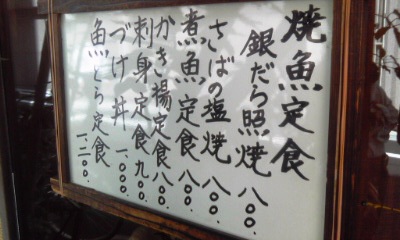 焼魚定食
銀だら照焼 八〇〇.
さばの塩焼 八〇〇.
煮魚定食 八〇〇.
かき揚定食 八〇〇.
刺身定食 九〇〇.
づけ丼 一、〇〇〇.
魚とら定食 一、二〇〇.